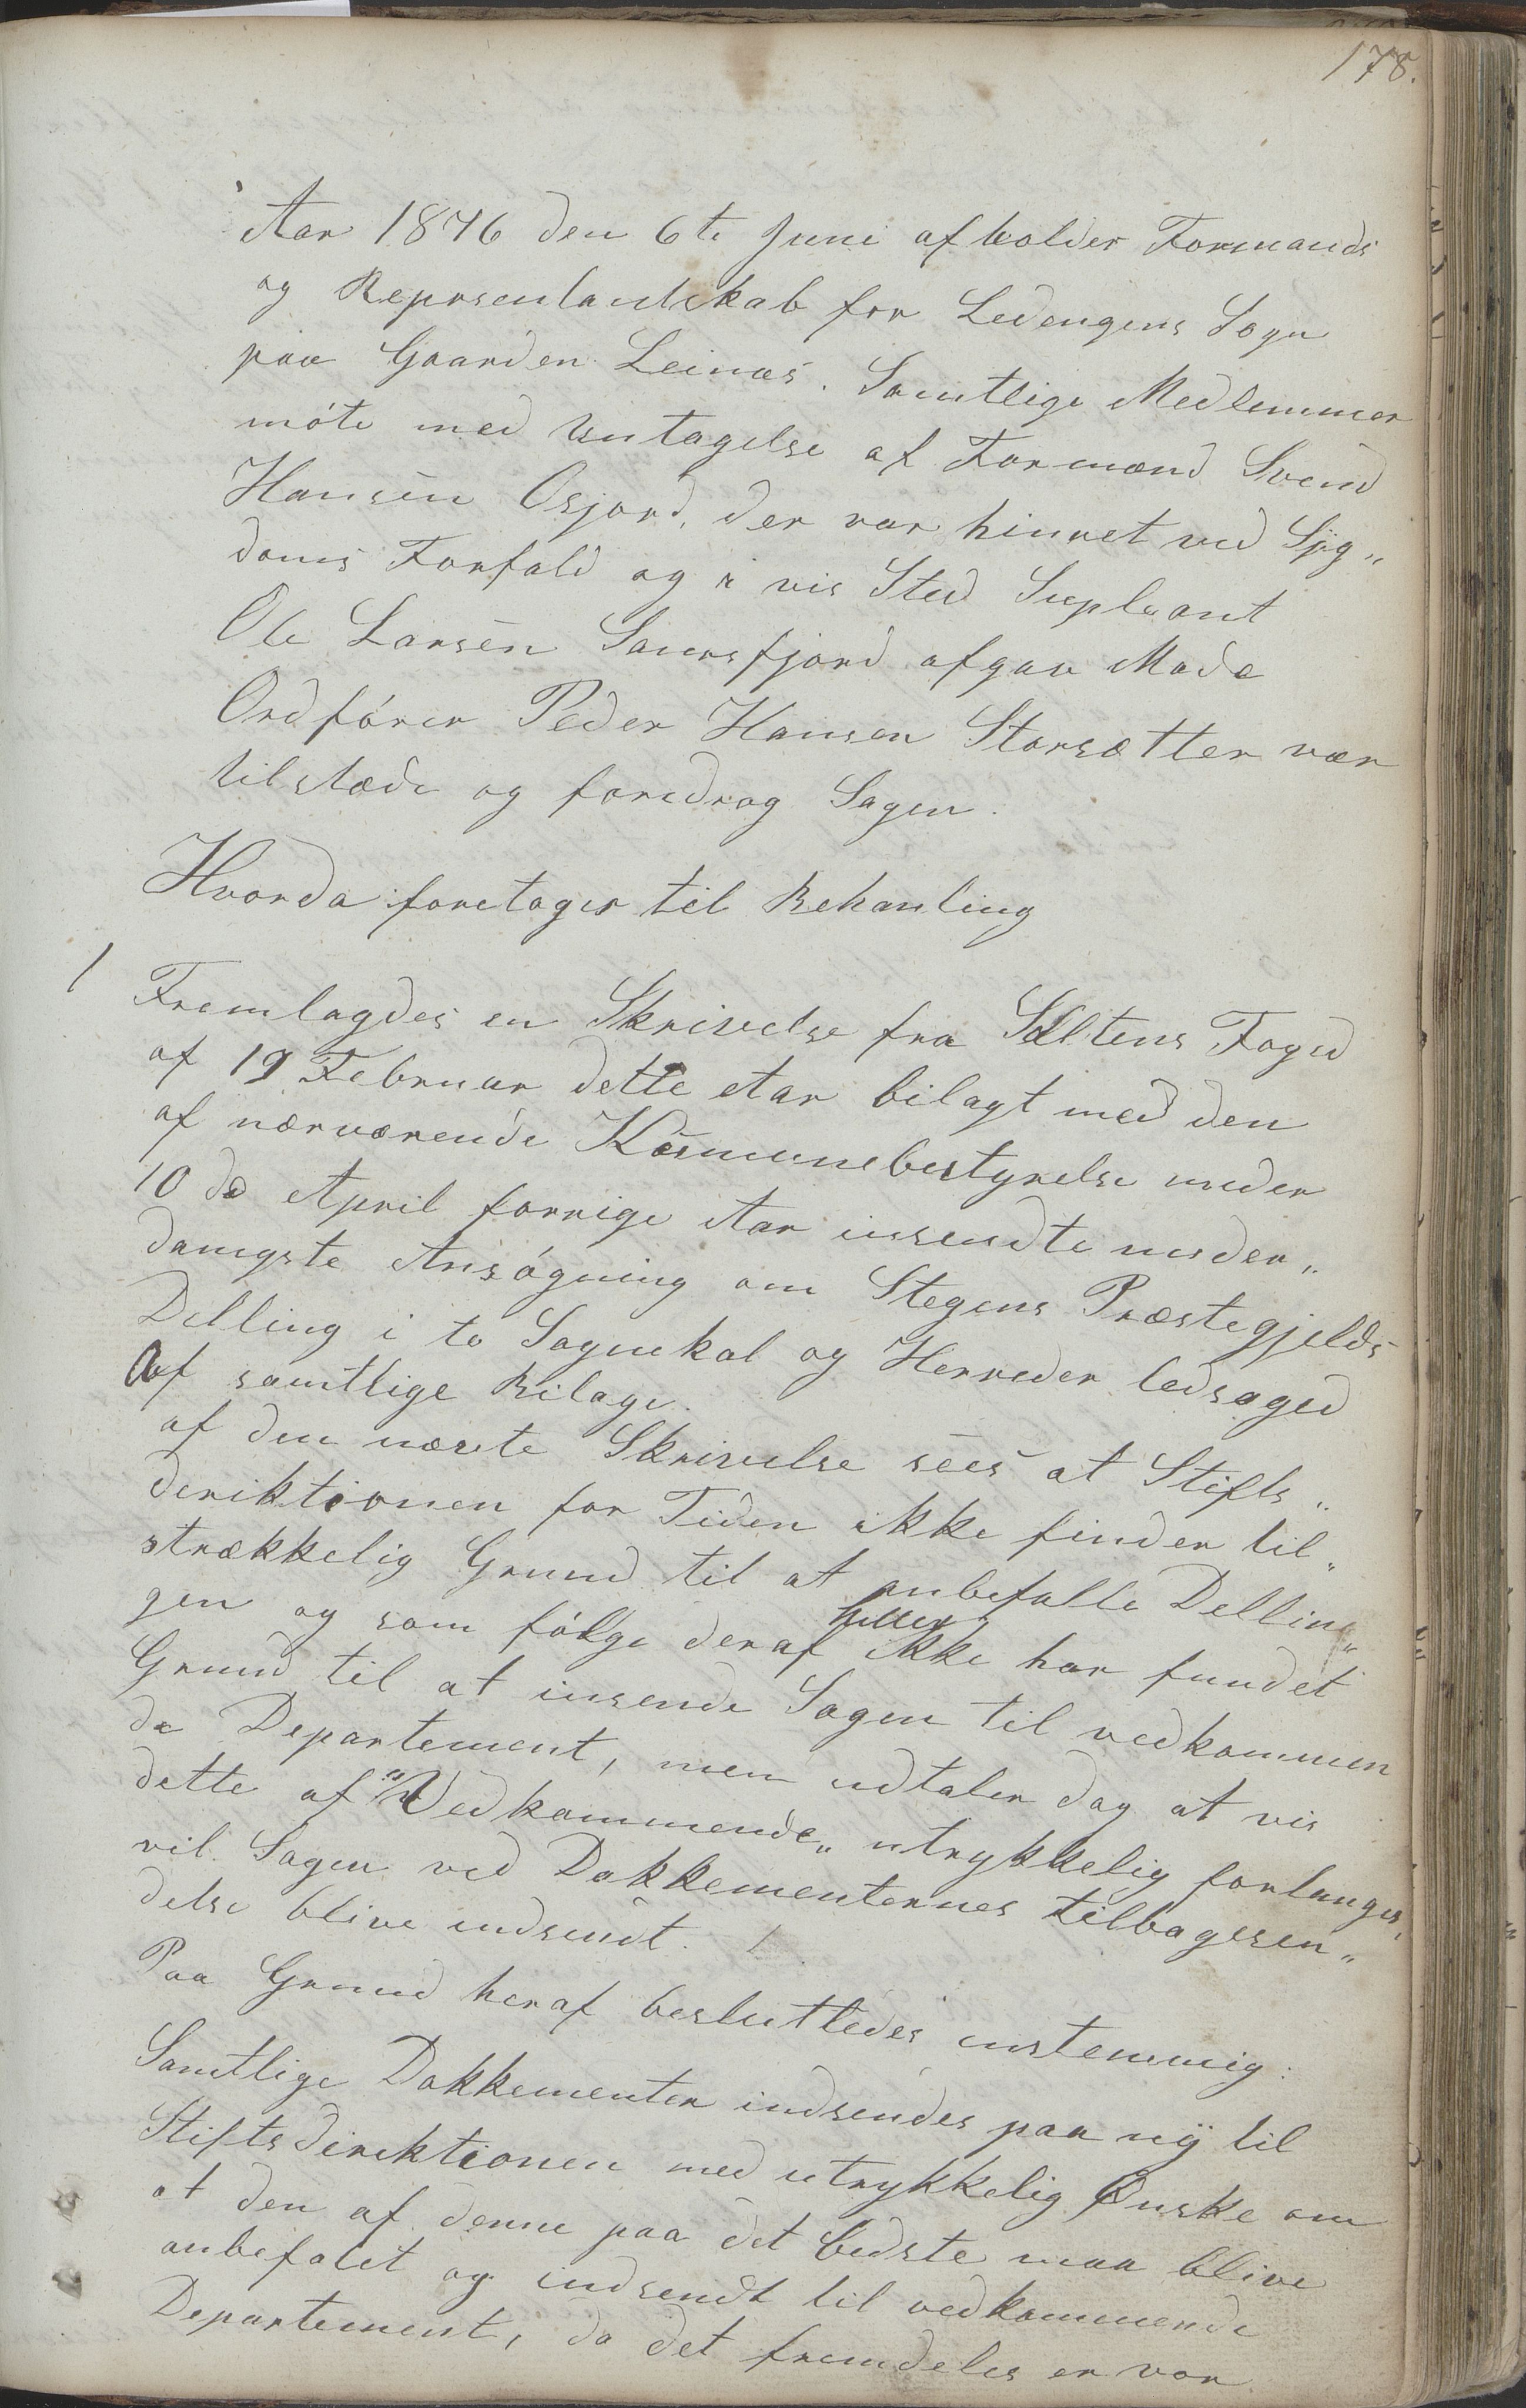 178.
Aar 1876 den 6te Juni afholder Formands
og Reprsentantskab for Ledengens Sogn
paa Gaarden Leinæs. Samtlige Medlemmer
møte med Untagelse af Formand Svend
Hansen Osjord, der var hinret ved Syg„
doms Forfald og i vis Sted Supleant
Ole Larsen Saursfjord afgav Møde
Ordfører Peder Hansen Storsætter var
tilstæde og foredrog Sagen.
Hvorda foretoges til Behanling
1 Fremlagdes en Skrivelse fra Saltens Foged
af 19 Februar dette Aar bilagt med den
af nærværende Komunebestyrelse under
10de April forrige Aar insendte under„
danigste Ansøgning om Stegens Præstegjelds
Delling i to Sognekal og Herreder ledsaged
Af samtlige Bilage.
af den nævte Skrivelse sees at Stifts„
deriktionen for Tiden ikke finder til„
strækkelig Grund til at anbefalle Delling„
gen og som følge deraf heller ikke har fundet
Grund til at insende Sagen til vedkommen
de Departement, men udtaler dog at vis
dette af „Vedkommende„ utrykkelig forlanges,
vil Sagen ved Dokkementernes tilbagesen„
delse blive indsendt. /
Paa Grund heraf besluttedes enstemmig:
Samtlige Dokkementer indsendes paa ny til
Stiftsdirektionen med utrykkelig Ønske om
at den af denne paa det bedste maa blive
anbefalet og indsendt til vedkommende
Departement, da det fremdeles er vor